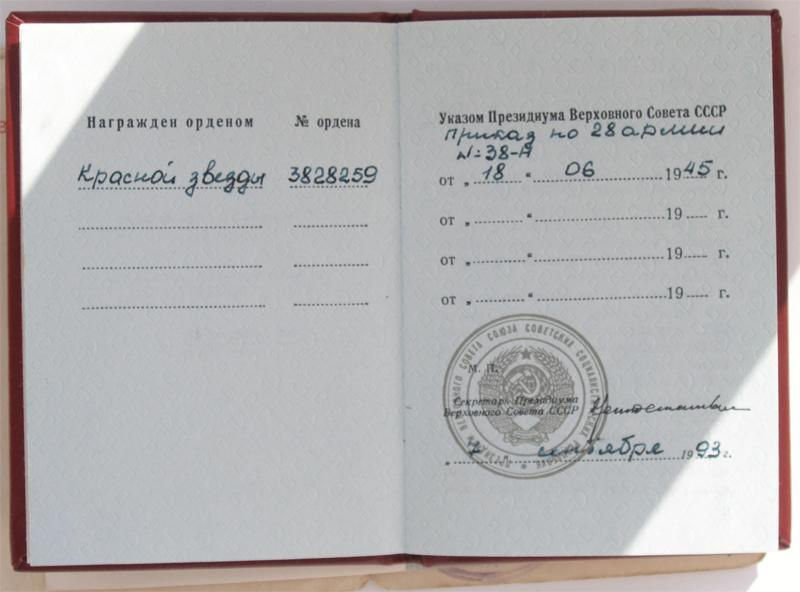 Награжден орденом
№ ордена
Красной звезды
3828259
Указом Президиума Верховного Совета СССР
Приказ по 28 армии
№:38-Н
от „ 18 “ 06 1945 г.
от „ “ 19 г.
от „ “ 19 г.
от „ “ 19 г.
М. П.
Секретарь Президиума
Верховного Совета СССР
„ 7 сентября 1993 г.
ВЕРХОВНОГО СОВЕТА СОЮЗА СОВЕТСКИХ СОЦИАЛИСТИЧЕСКИХ